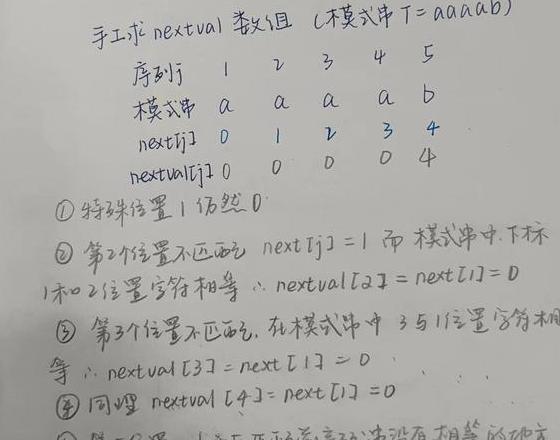 手工求 nextval 数组 (模式串 T = aaaab)
序列j 1 2 3 4 5
模式串 a a a a b
next[j] 0 1 2 3 4
nextval[j] 0 0 0 0 4
① 特殊位置 1 仍然 0
② 第2个位置不匹配 next[j] = 1 而 模式串中下标
1和2位置字符相等 ∴ nextval[2] = next[1] = 0
③ 第3个位置不匹配, 在模式串中 3与1位置字符相
等 ∴ nextval[3] = next[1] = 0
④ 同理 nextval[4] = next[1] = 0
没有相等的地方